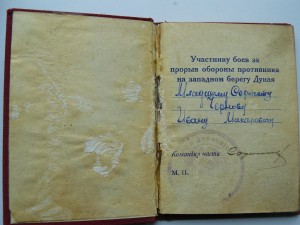 Участнику боев за
прорыв обороны противника
на западном берегу Дуная
Младшему Сержанту
Ивану Макаровичу
Командир части
М. П.